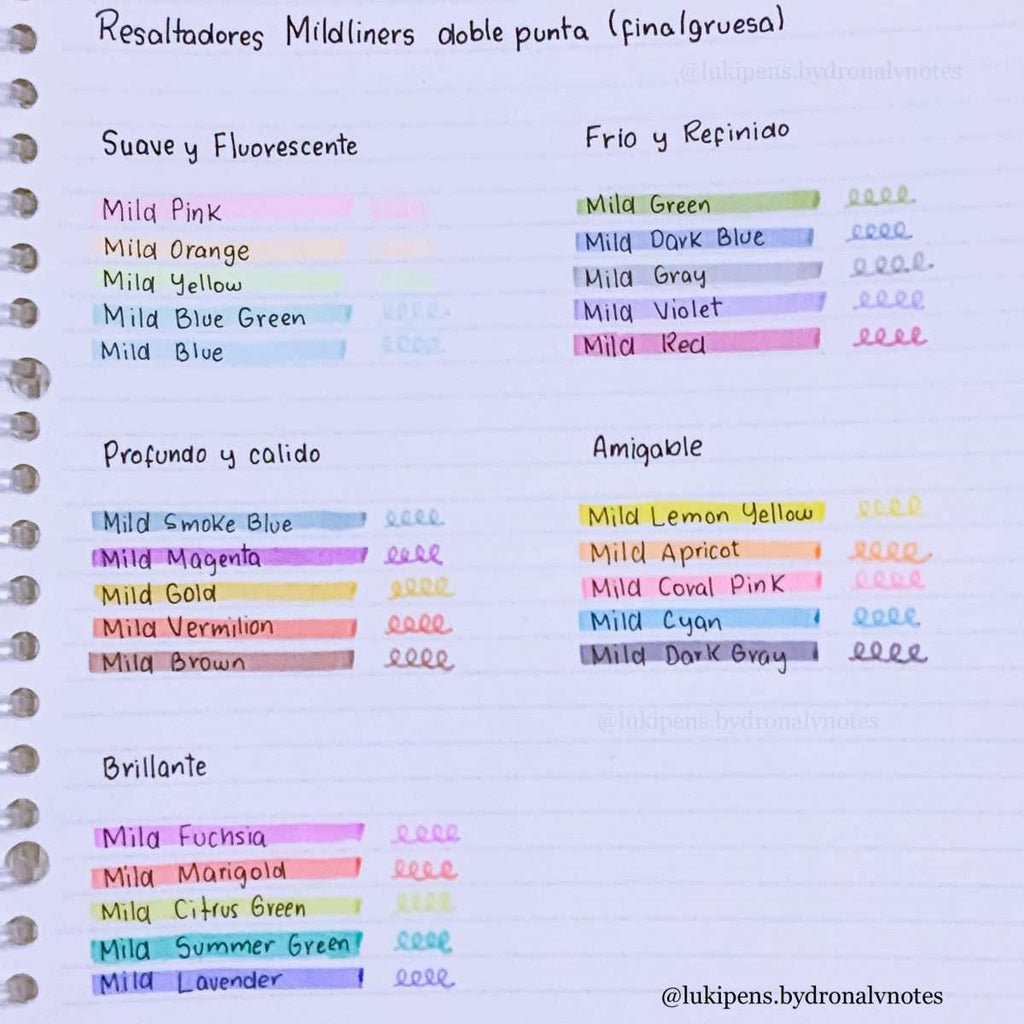 Resaltadores Mildliners doble punta (fina/gruesa)
@lukipens.bydronalvnotes
Suave y Fluorescente
Mild Pink
Mild Orange
Mild Yellow
Mild Blue Green
Mild Blue
Frio y Refinido
Mild Green
Mild Dark Blue
Mild Gray
Mild Violet
Mild Red
Profundo y calido
Mild Smoke Blue
Mild Magenta
Mild Gold
Mild Vermilion
Mild Brown
Amigable
Mild Lemon Yellow
Mild Apricot
Mild Coral Pink
Mild Cyan
Mild Dark Gray
@lukipens.bydronalvnotes
Brillante
Mild Fuchsia
Mild Marigold
Mild Citrus Green
Mild Summer Green
Mild Lavender
@lukipens.bydronalvnotes